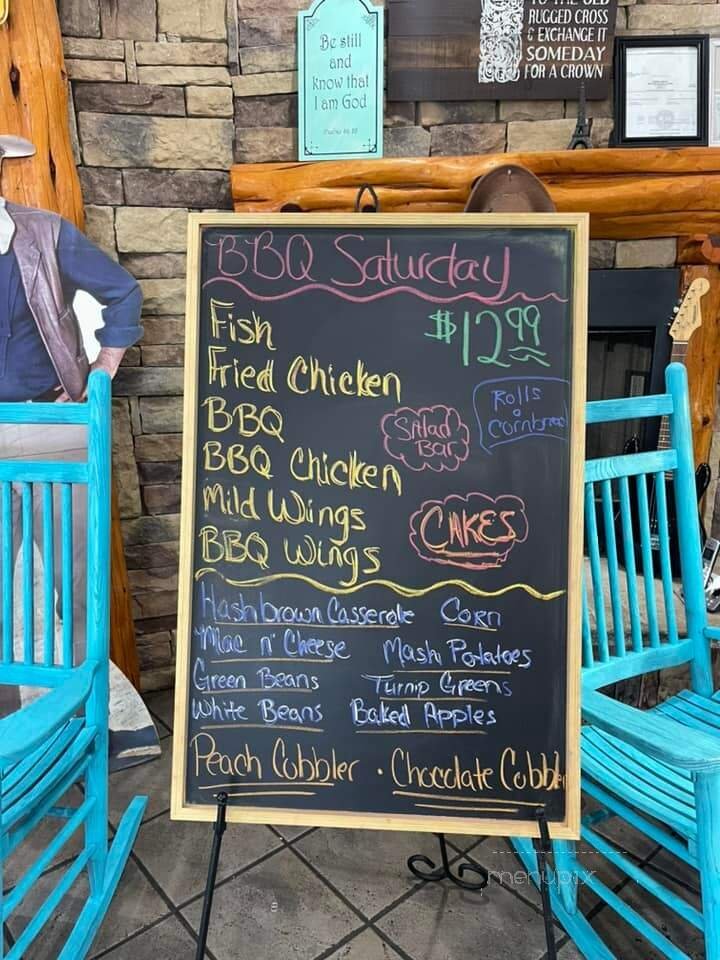 Be still
and
know that
I am God
Psalm 46:10
TO THE OLD
RUGGED CROSS
& EXCHANGE IT
SOMEDAY
FOR A CROWN
BBQ Saturday
$12.99
Fish
Fried Chicken
BBQ
BBQ Chicken
Mild Wings
BBQ Wings
Salad
Bar
Rolls
Cornbread
CAKES
Hashbrown Casserole Corn
Mac n' Cheese Mash Potatoes
Green Beans Turnip Greens
White Beans Baked Apples
Peach Cobbler · Chocolate Cobbler
menupix